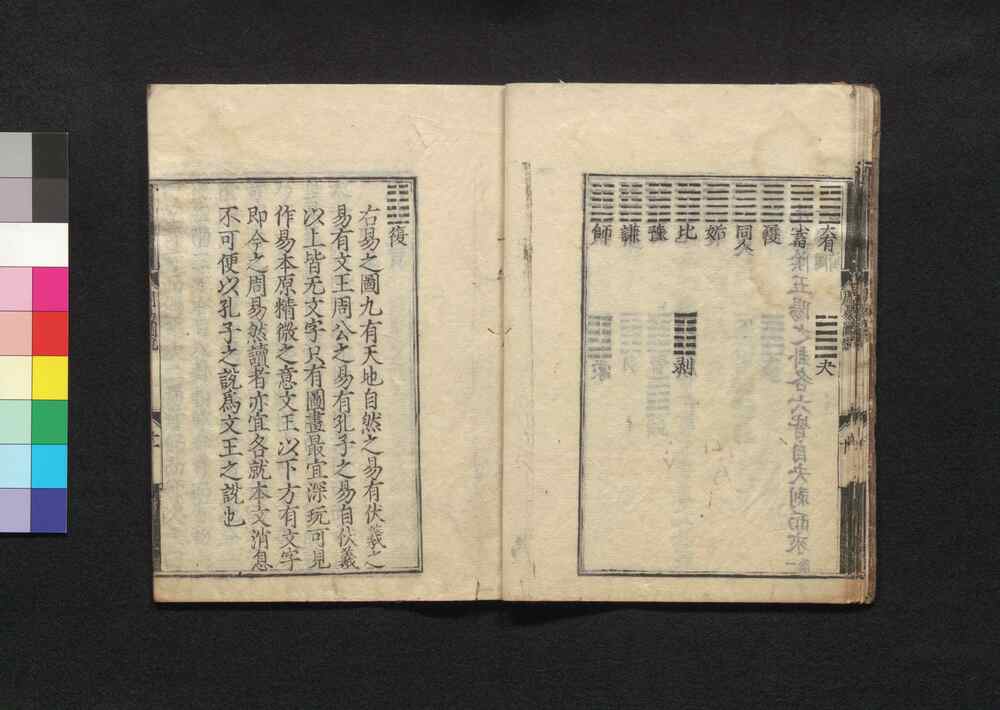 大有 夬
小畜
履
同人
姤
比 剥
豫
謙
師
復
右易之圖九有天地自然之易有伏羲之
易有文王周公之易有孔子之易自伏羲
以上皆无文字只有圖畫最宜深玩可見
作易本原精微之意文王以下方有文字
即今之周易然讀者亦宜各就本文消息
不可便以孔子之說爲文王之說也